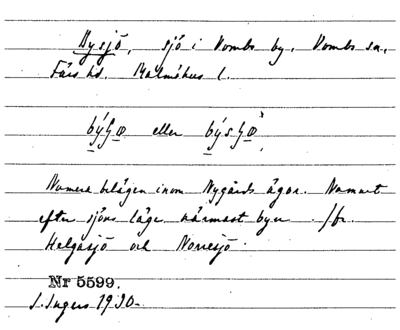 Bysjö, sjö i Vombs by, Vombs sn,
Färs hd. Malmöhus l.
eller
Numera belägen inom Nygårds ägor. Namnet
efter sjöns läge närmast byn. Jfr.
Helgasjö och Norresjö.
Nr 5599.
J. Ingers 1930.